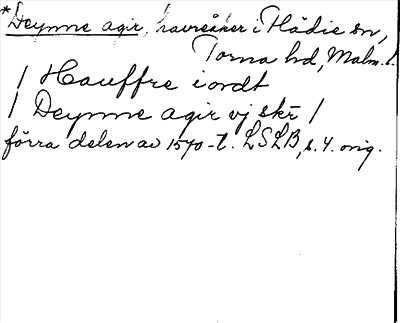 *Deynne agir, havreåker i Flädie sn,
Torna hd, Malm. l.
| Hauffre i ordt
| Deynne agir vj skr |
förra delen av 1570-t. LSLB, s. 4. orig.